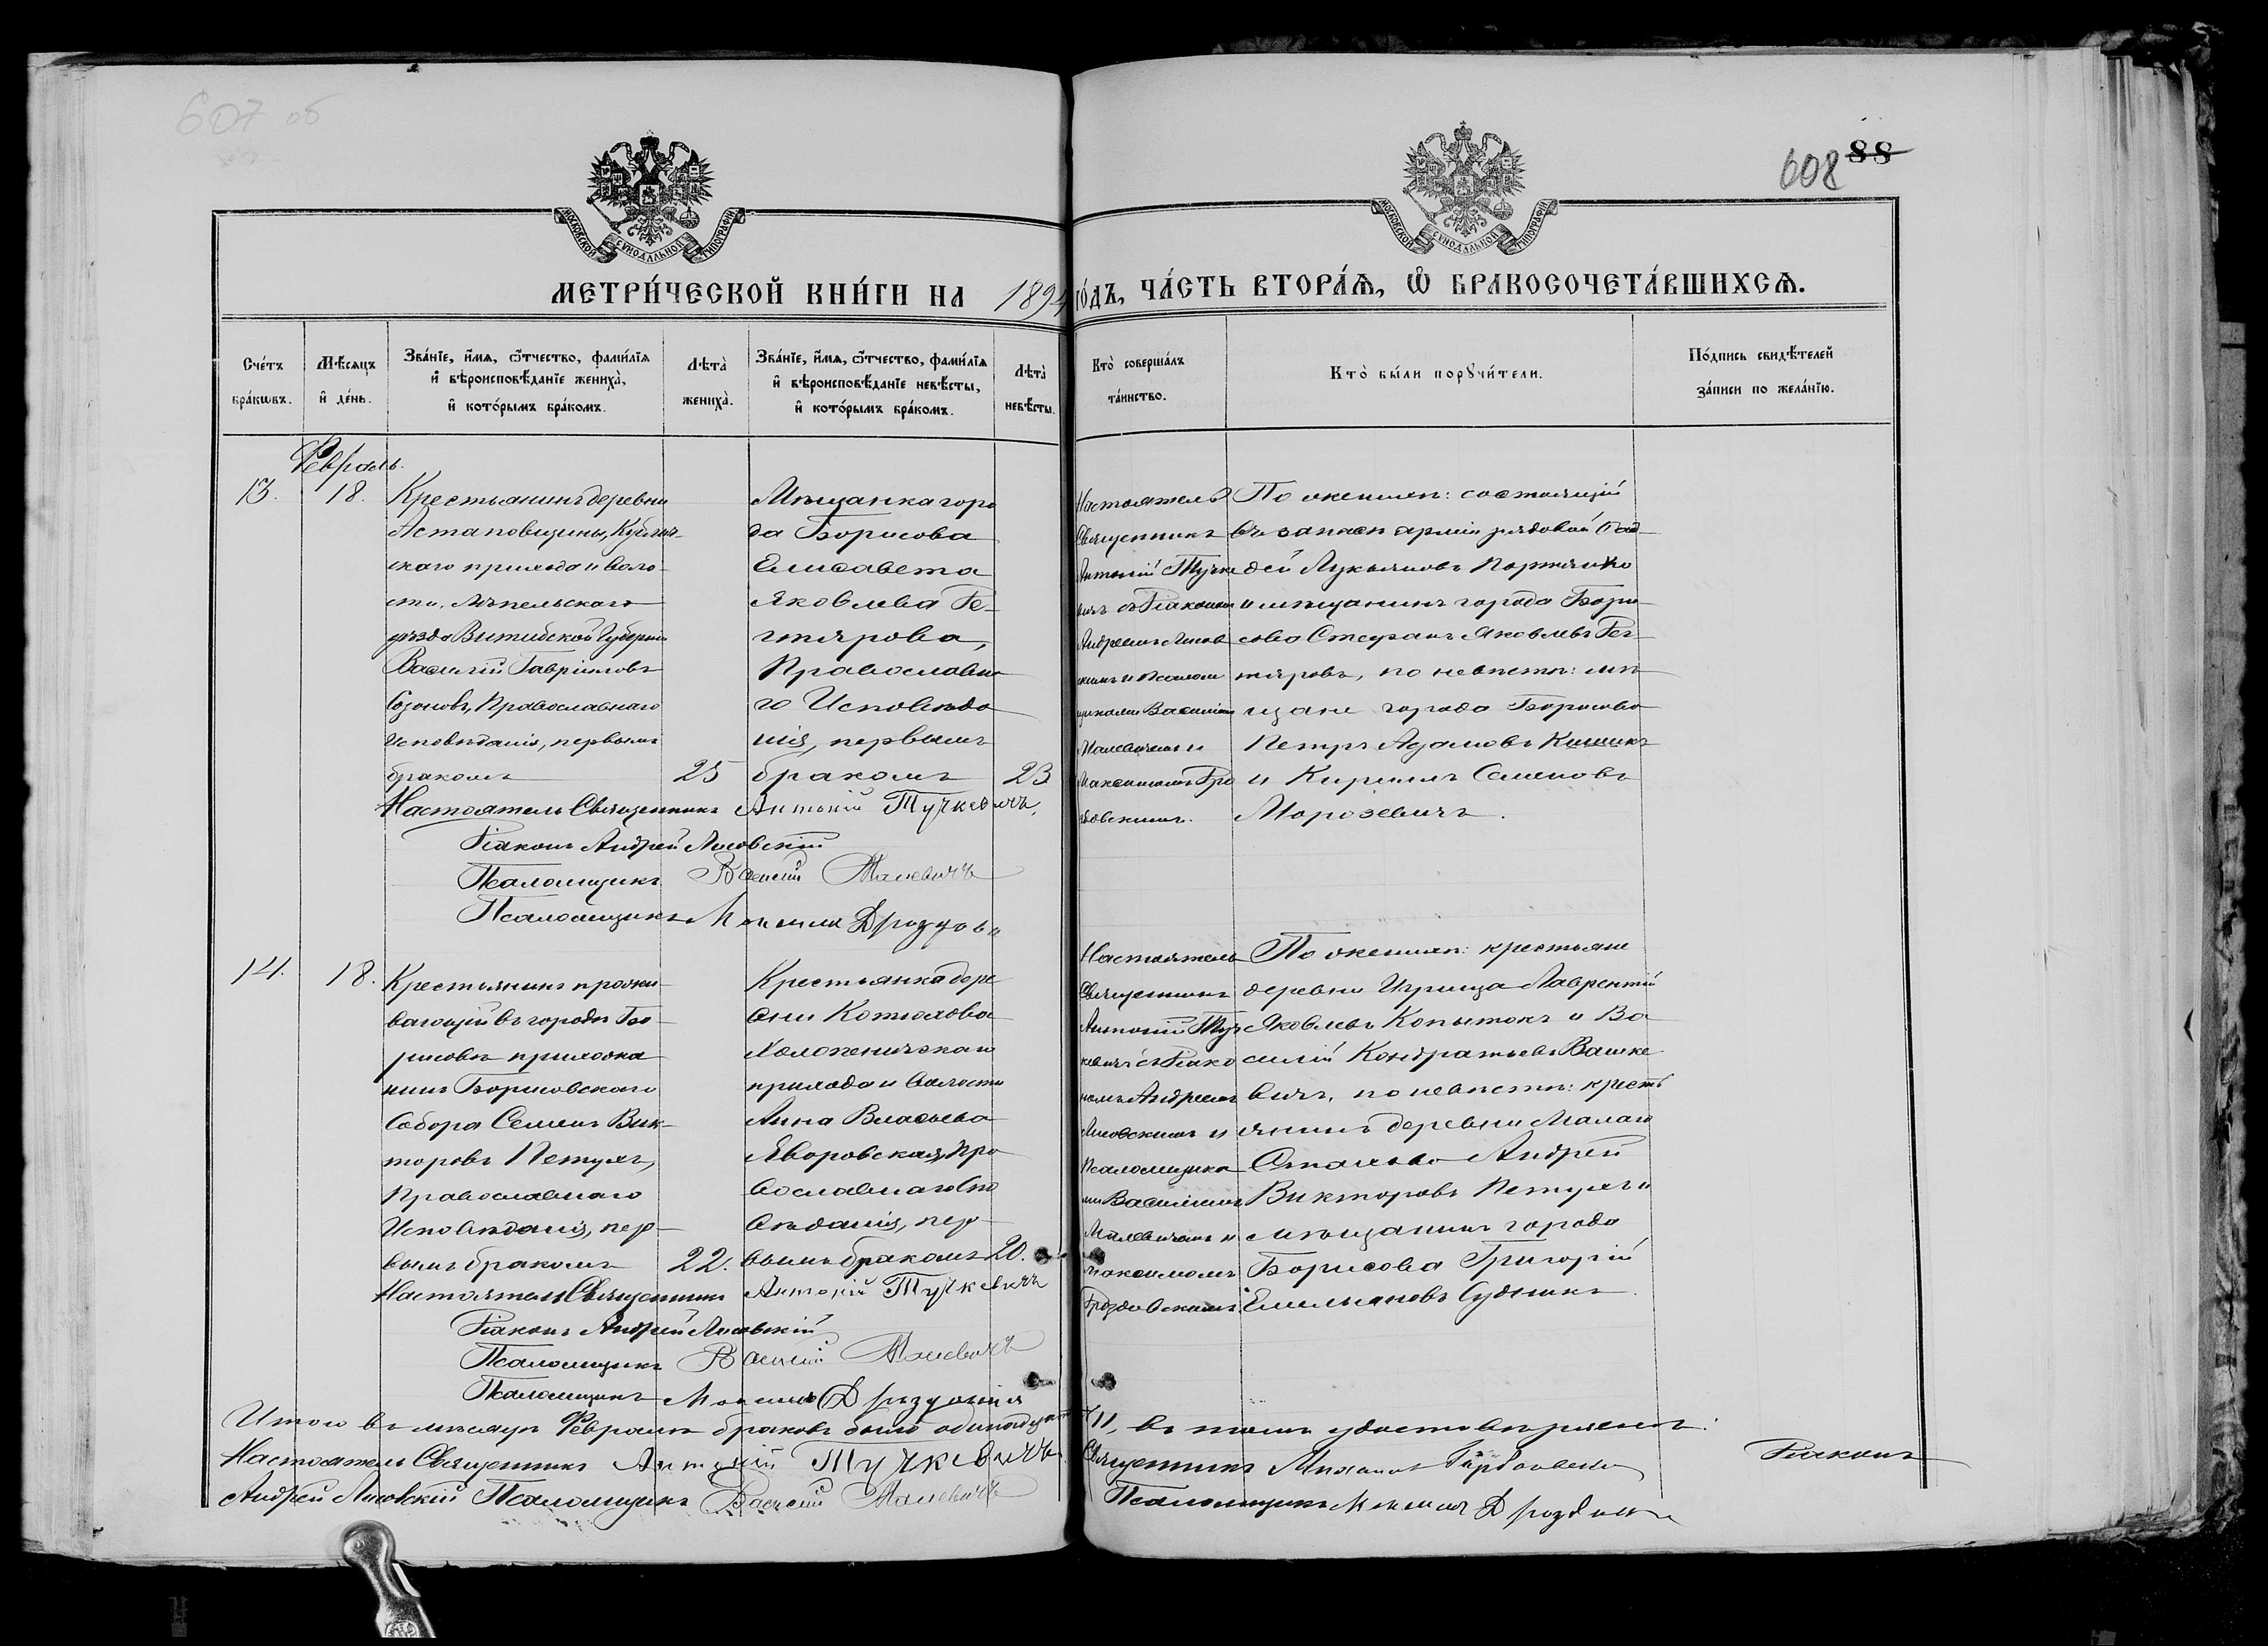 607 об
608 88
МОСКОВСКОЙ СѴНОДАЛЬНОЙ ТИПОГРАФІИ
МОСКОВСКОЙ СѴНОДАЛЬНОЙ ТИПОГРАФІИ
МЕТРИ́ЧЕСКОЙ КНИ́ГИ НА 1894 ГО́ДЪ, ЧА́СТЬ ВТОРА́Ѧ, Ѡ҆ БРАКОСОЧЕТА́ВШИХСѦ.
Сче́тъ бра́кωвъ.
Мѣ́сѧцъ и҆ де́нь.
Зва́нїе, и҆́мѧ, ѻ҆́тчество, фами́лїѧ и҆ вѣроисповѣ́данїе жениха̀, и҆ кото́рымъ бра́комъ.
Лѣта̀ жениха̀.
Зва́нїе, и҆́мѧ, ѻ҆́тчество, фами́лїѧ и҆ вѣроисповѣ́данїе невѣ́сты, и҆ кото́рымъ бра́комъ.
Лѣта̀ невѣ́сты.
Кто̀ соверша́лъ та́инство.
Кто̀ бы́ли порꙋчи́тели.
По́дпись свидѣ́телей за́писи по жела́нїю.
Февраль.
13.
18.
Крестьянинъ деревни
Астаповщины, Кублич-
скаго прихода и воло-
сти, Лепельскаго
уѣзда Витебской Губерніи
Василій Гавріиловъ
Созоновъ, Православнаго
Исповѣданія, первымъ
бракомъ
25
Мѣщанка горо
да Борисова
Елисавета
Яковлева Ге-
гтярова,
Православна
го Исповѣда
нія, первымъ
бракомъ
23
Настоятель
Священникъ
Антоній Тучке
вичъ съ Діаконом
Андреемъ Лисов
скимъ и Псалом
щиками Василіем
Малевичемъ и
Максимомъ Дро
здовскимъ.
По женихѣ: состоящій
въ запасѣ арміи рядовой Фад-
дей Лукьяновъ Портянко
и мѣщанинъ города Бори-
сова Стефанъ Яковлевъ Гег-
тяровъ, по невѣстѣ: мѣ
щане города Борисова
Петръ Адамовъ
и Кириллъ Семеновъ
Морозевичъ.
Настоятель Священникъ Антоній Тучкевичъ.
Діаконъ Андрей Лисовскій
Псаломщикъ Василій Малевичъ
Псаломщикъ Максимъ Дроздовскі
14.
18.
Крестьянинъ прожи
вающій въ городѣ Бо-
рисовѣ прихожа
нинъ Борисовскаго
Собора Семенъ Вик-
торовъ Петухъ,
Православнаго
Исповѣданія, пер-
вымъ бракомъ
22.
Крестьянка дере
вни Котюхова
Холопеничскаго
прихода и волости
Анна Власьева
Яворовская, Пра
вославнаго Испо
вѣданія, пер-
вымъ бракомъ
20.
Настоятель
Священникъ
Антоній Туч
кевичъ съ Діако
номъ Андреемъ
Лисовскимъ и
Псаломщика
ми Василіемъ
Малевичемъ и
Максимомъ
Дроздовскимъ.
По женихѣ: крестьяне
деревни Игрища Лаврентій
Яковлевъ Копытокъ и Ва
силій Кондратьевъ Вашке
вичъ, по невѣстѣ: кресть
янинъ деревни Малаго
Стахова Андрей
Викторовъ Петухъ и
мѣщанинъ города
Борисова Григорій
Емельяновъ Судникъ.
Настоятель Священникъ Антоній Тучкевичъ
Діаконъ Андрей Лисовскій
Псаломщикъ Василій Малевичъ
Псаломщикъ Максимъ Дроздовскій
Итого въ мѣсяцѣ Февралѣ браковъ было одинадцать 11, въ томъ удостовѣряемъ:
Настоятель Священникъ Антоній Тучкевичъ. Священникъ Михаилъ Діаконъ
Андрей Лисовскій Псаломщикъ Василій Малевичъ Псаломщикъ Максимъ Дроздовскі